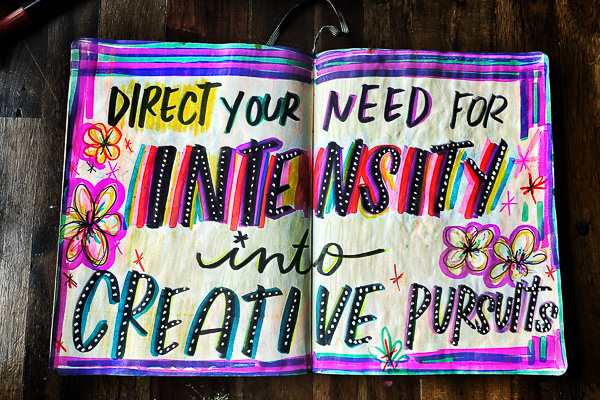 DIRECT YOUR NEED FOR
INTENSITY
into
CREATIVE PURSUITS